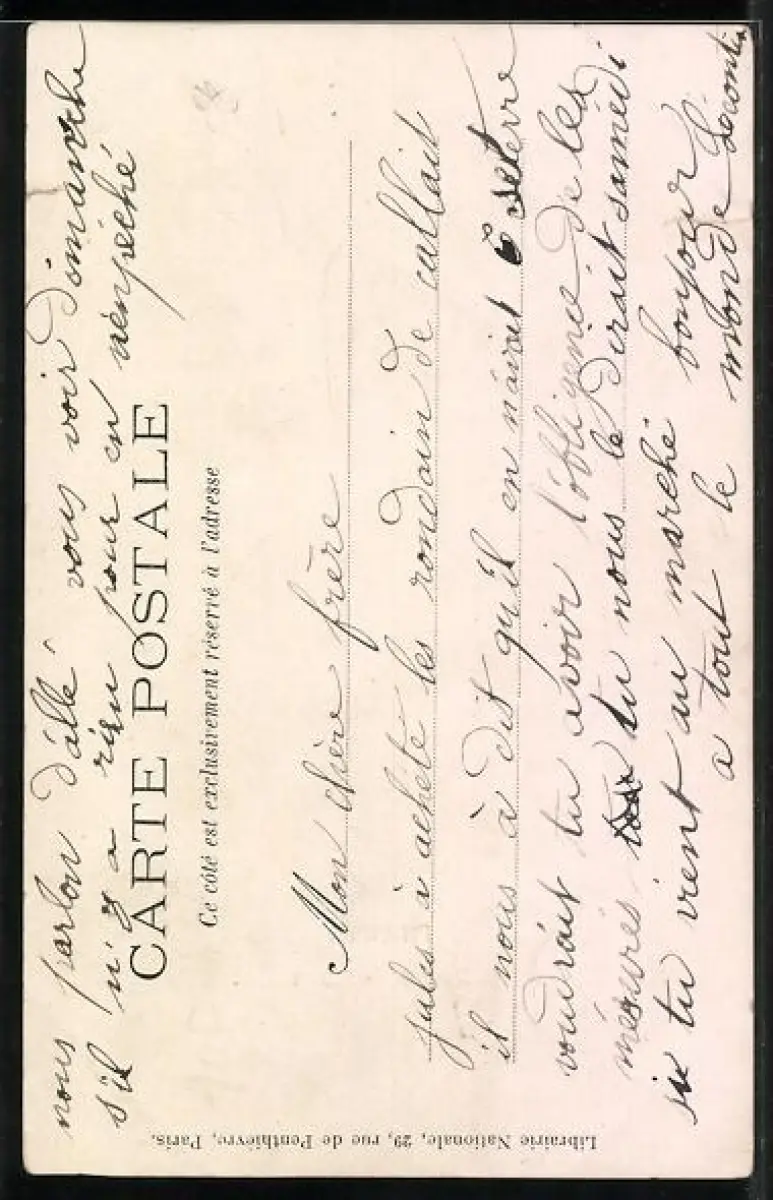 nous parlon d'allé vous voir dimanche
s'il n'y a rien pour en nenpéché
CARTE POSTALE
Ce côté est exclusivement réservé à l'adresse
Mon chère frère
jules à acheté les rondain de callait
il nous à dit qu'il en nàvait 6 seterre
voudrait tu avoir l'obligence de les
mésurés tu nous le dirait samedi
si tu vient au marché bonjour
a tout le monde
Librairie Nationale, 29, rue de Penthièvre, Paris.